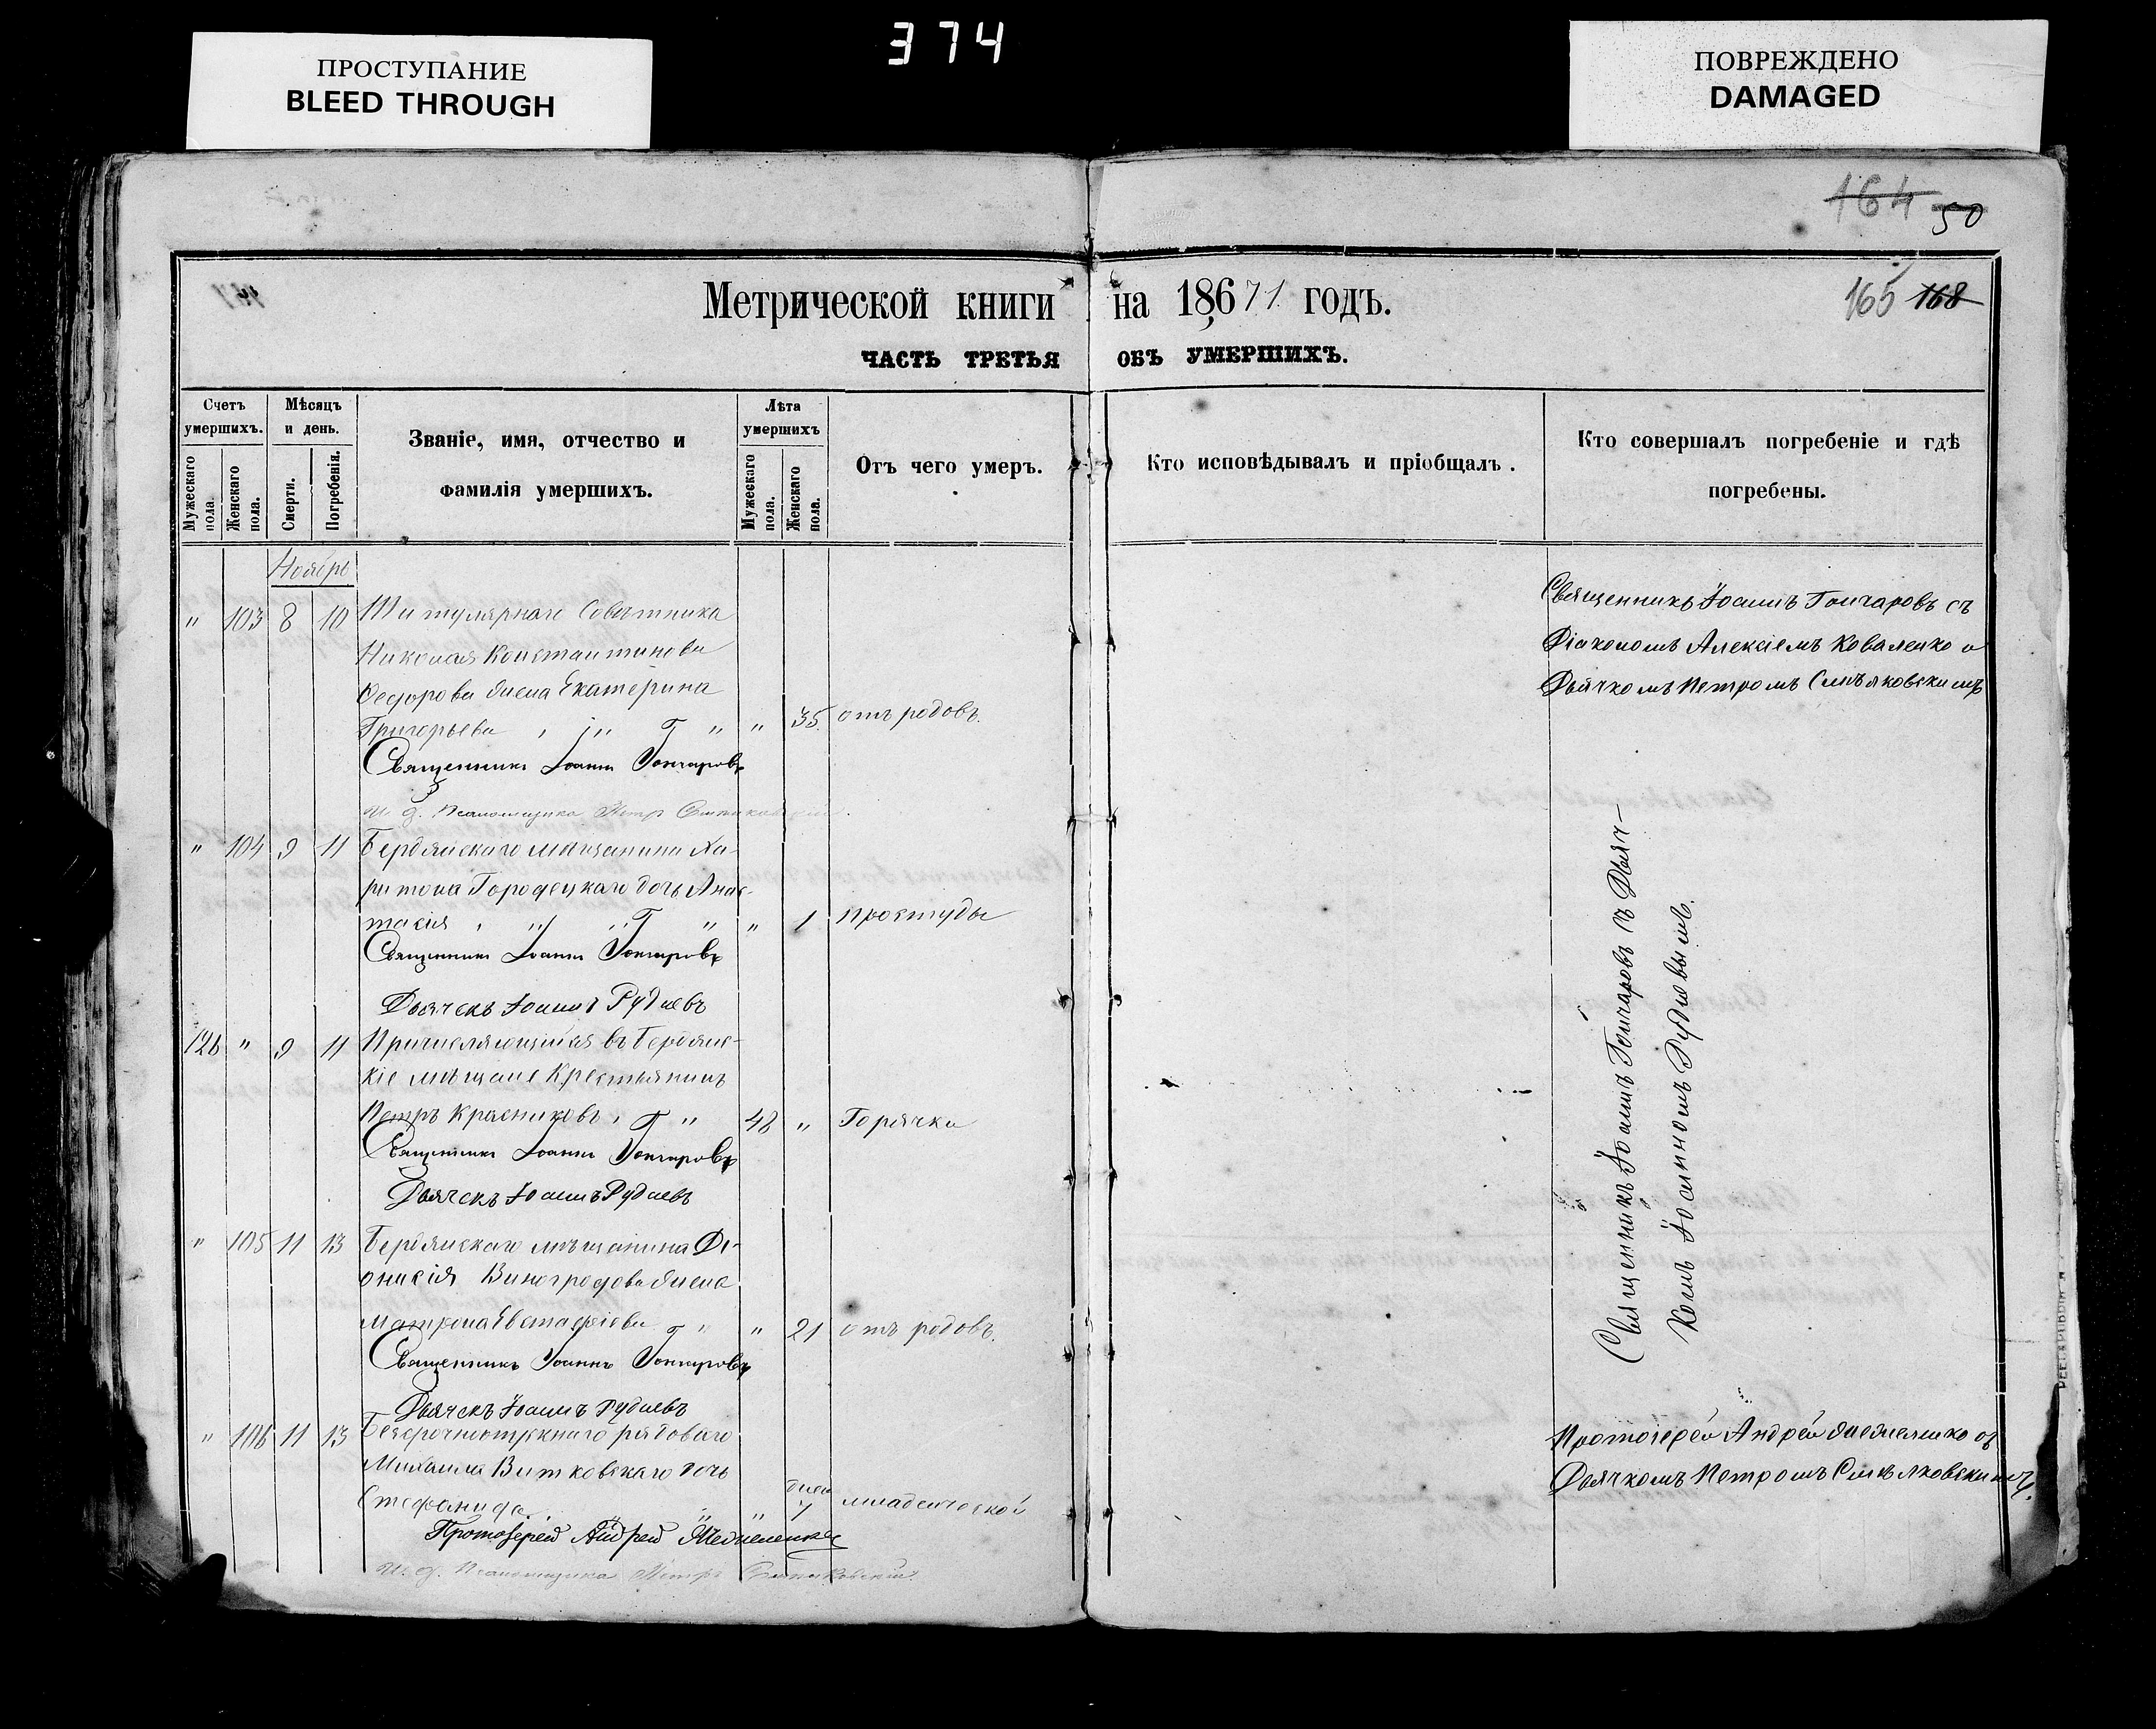 374
ПРОСТУПАНИЕ
BLEED THROUGH
ПОВРЕЖДЕНО
DAMAGED
164 50
Метрической книги на 18671 годъ.
165 168
ЧАСТЬ ТРЕТЬЯ ОБЪ УМЕРШИХЪ.
Счетъ умершихъ.
Мужескаго пола.
Женскаго пола.
Мѣсяцъ и день.
Смерти.
Погребенія.
Званіе, имя, отчество и
фамилія умершихъ.
Лѣта умершихъ
Мужескаго пола.
Женскаго пола.
Отъ чего умеръ.
Кто исповѣдывалъ и пріобщалъ.
Кто совершалъ погребеніе и гдѣ
погребены.
Ноябрь
" 103 8 10 Титулярнаго Совѣтника
Николая Константинова
Федорова жена Екатерина
Григорьева " " 35 отъ родовъ.
Священникъ Іоаннъ Гончаровъ
И. д. Псаломщика Петръ Смѣлковскій
Священникъ Іоаннъ Гончаровъ съ
Діакономъ Алексіемъ Коваленко и
Дьячкомъ Петромъ Смѣлковскимъ
" 104 9 11 Бердянскаго мѣщанина Ха-
ритона Городецкаго дочь Анас-
тасія " " 1 простуды
Священникъ Іоаннъ Гончаровъ
Дьячекъ Іоаннъ Рудневъ
126 " 9 11 Причисляющійся въ Бердянс-
кіе мѣщане Крестьянинъ
Петръ Красниковъ " 48 " Горячка
Священникъ Іоаннъ Гончаровъ
Дьячекъ Іоаннъ Рудневъ
Священникъ Іоаннъ Гончаровъ съ Дьяч-
комъ Іоанномъ Рудневымъ.
" 105 11 13 Бердянскаго мѣщанина Ді-
онисія Виноградова жена
Матрона Евстафіева " " 21 отъ родовъ.
Священникъ Іоаннъ Гончаровъ
Дьячекъ Іоаннъ Рудневъ
" 106 11 13 Безсрочноотпускнаго рядоваго
Михаила Витковскаго дочь
Стефанида " " дней 7 младенческой
Протоіерей Андрей
И. д. Псаломщика Петръ Смѣлковскій.
Протоіерей Андрей съ
Дьячкомъ Петромъ Смѣлковскимъ.